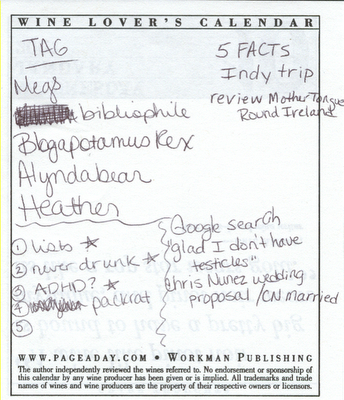 WINE LOVER'S CALENDAR
TAG
Megs
bibliophile
Blogapotamus Rex
Alyndabear
Heather
5 FACTS
Indy trip
review Mother Tongue
Round Ireland
① lists ☆
② never drunk ☆
③ ADHD? ☆
④ packrat
⑤
Google search
"glad I don't have
testicles"
Chris Nunez wedding
proposal /CN married
WWW.PAGEADAY.COM • WORKMAN PUBLISHING
The author independently reviewed the wines referred to. No endorsement or sponsorship of
this calendar by any wine producer has been given or is implied. All trademarks and trade
names of wines and wine producers are the property of their respective owners or licensors.